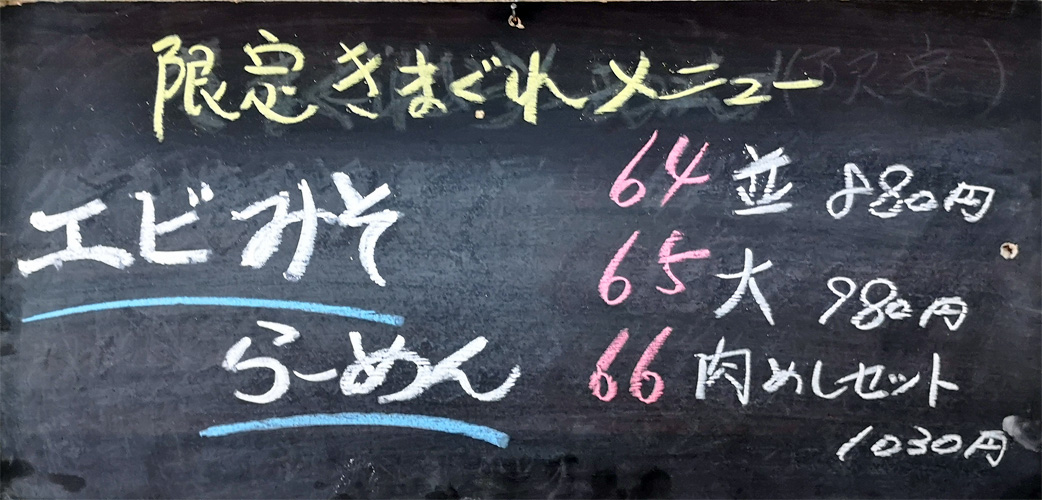 限定きまぐれメニュー
エビみそ
らーめん
64 並 880円
65 大 980円
66 肉めしセット
1030円